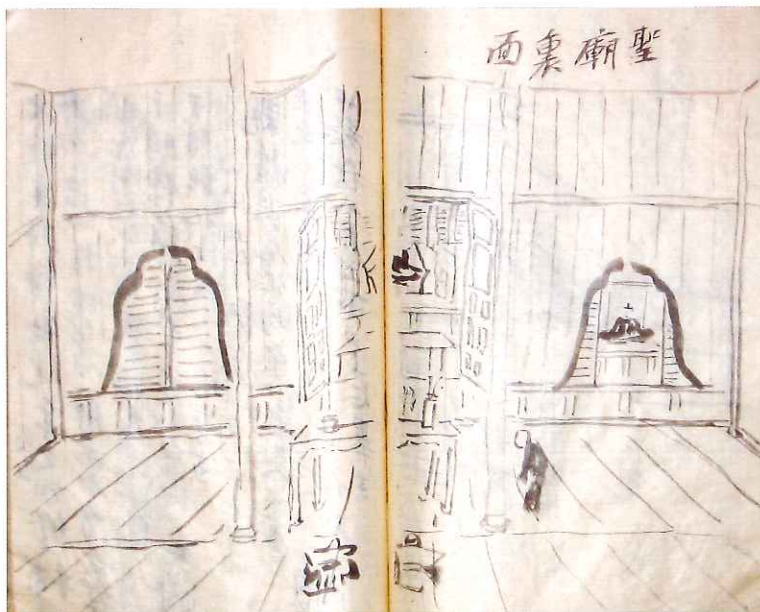 聖廟裏面